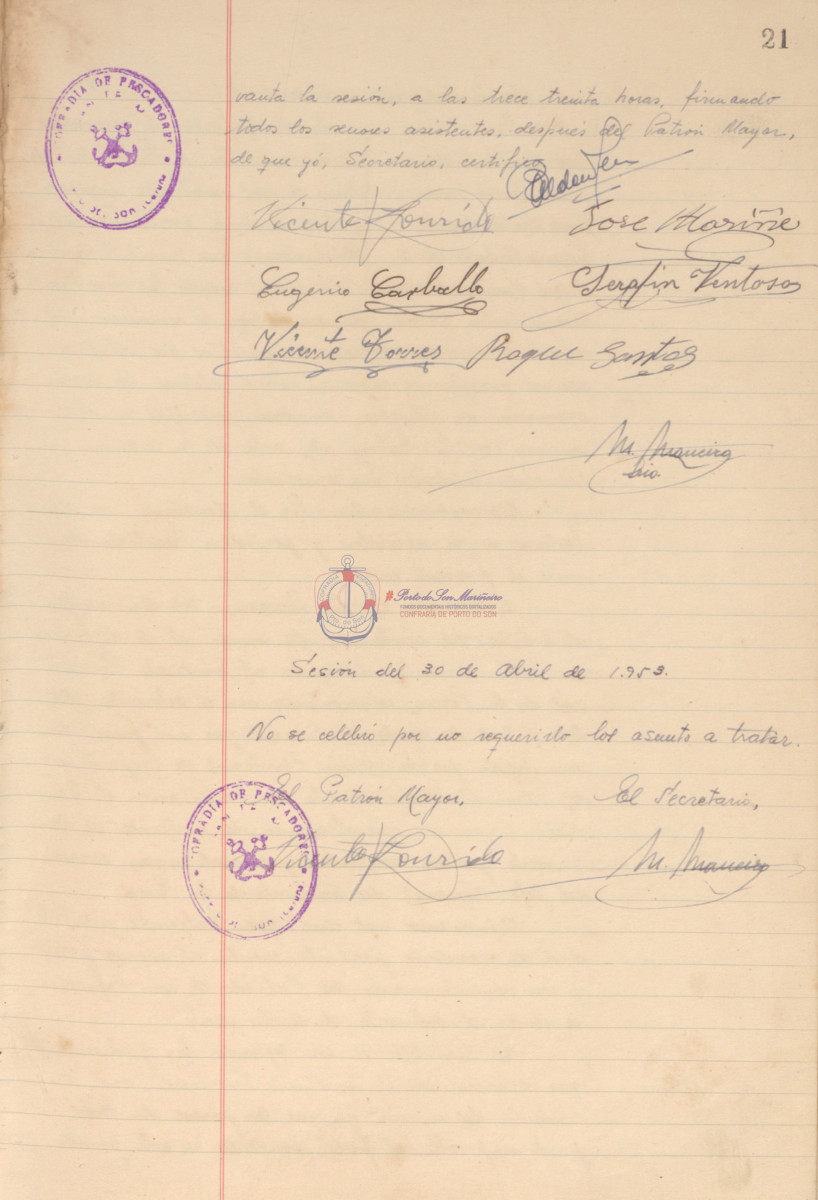 21
COFRADIA DE PESCADORES
vanta la sesión, a las trece treinta horas, firmando
todos los señores asistentes, después del Patrón Mayor,
de que yó, Secretario, certifico
Vicente Lourido
Jose Mariñe
Eugenio Carballo
Serafin Ventoso
Vicente Torres
Roque Santos
M. Maneiro
Srio.
Porto do Son Mariñeiro
FONDOS DOCUMENTAIS HISTÓRICOS DIXITALIZADOS
CONFRARÍA DE PORTO DO SON
Sesión del 30 de Abril de 1.953.
No se celebró por no requerirlo los asunto a tratar.
El Patrón Mayor,
El Secretario,
COFRADIA DE PESCADORES
Vicente Lourido
M. Maneiro